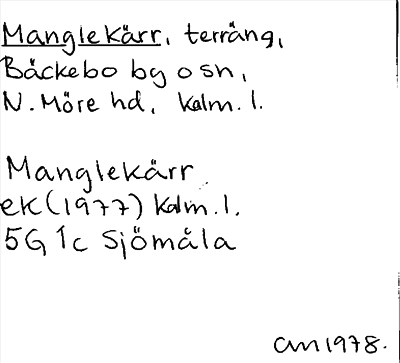 Manglekärr, terräng,
Bäckebo by o sn,
N. Möre hd, Kalm. l.
Manglekärr
ek (1977) Kalm. l.
5G 1c Sjömåla
CM 1978.